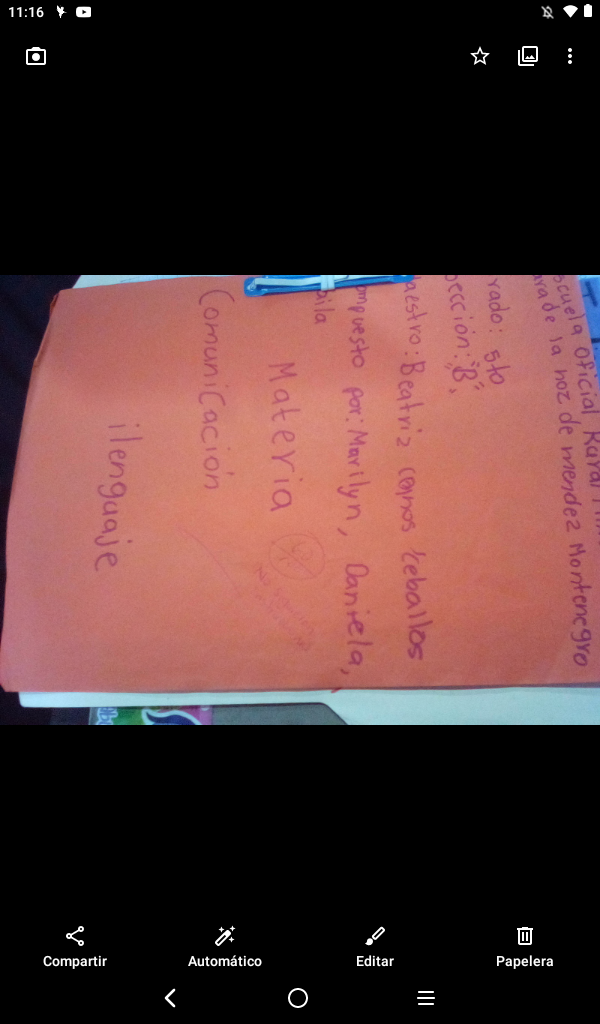 11:16
scuela Oficial Rural
arade la noz de mendez Montenegro
rado: 5to
ección: "B",
aestro: Beatriz Ceballos
ompuesto por: Marilyn, Daniela,
aila
Materia
Comunicación
ilenguaje
Compartir
Automático
Editar
Papelera